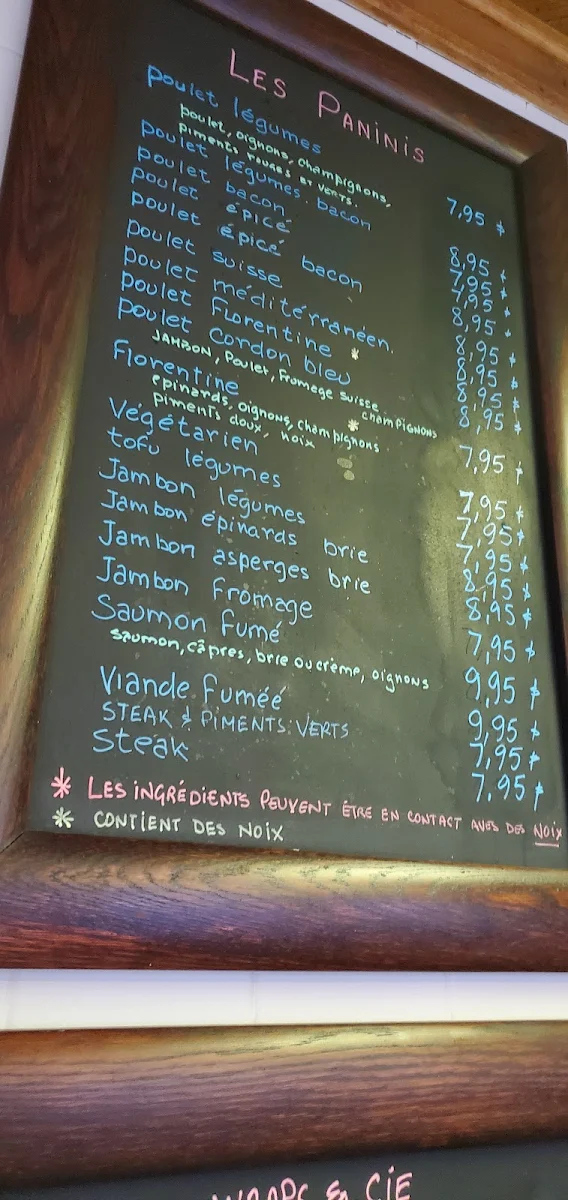 LES PANINIS
poulet légumes 7,95 $
poulet, oignons, champignons,
piments rouges et verts.
poulet légumes. bacon 8,95 $
poulet bacon 7,95 $
poulet épicé 7,95 $
poulet épicé bacon 8,95 $
poulet suisse 8,95 $
poulet méditérranéen. 8,95 $
poulet Florentine * 8,95 $
poulet cordon bleu 8,95 $
JAMBON, Poulet, Fromage suisse
champignons
Florentine * 7,95 $
épinards, oignons, champignons
Piments doux, noix
Végétarien 7,95 $
tofu légumes 7,95 $
Jambon légumes 7,95 $
Jambon épinards brie 8,95 $
Jambon asperges brie 8,95 $
Jambon fromage 7,95 $
Saumon fumé 9,95 $
saumon, câpres, brie ou crème, oignons
Viande fuméé 9,95 $
STEAK & PIMENTS VERTS 7,95 $
Steak 7,95 $
* LES INGRÉDIENTS PEUVENT ÊTRE EN CONTACT AVES DES NOIX
* CONTIENT DES NOIX
WRAPS & CIE